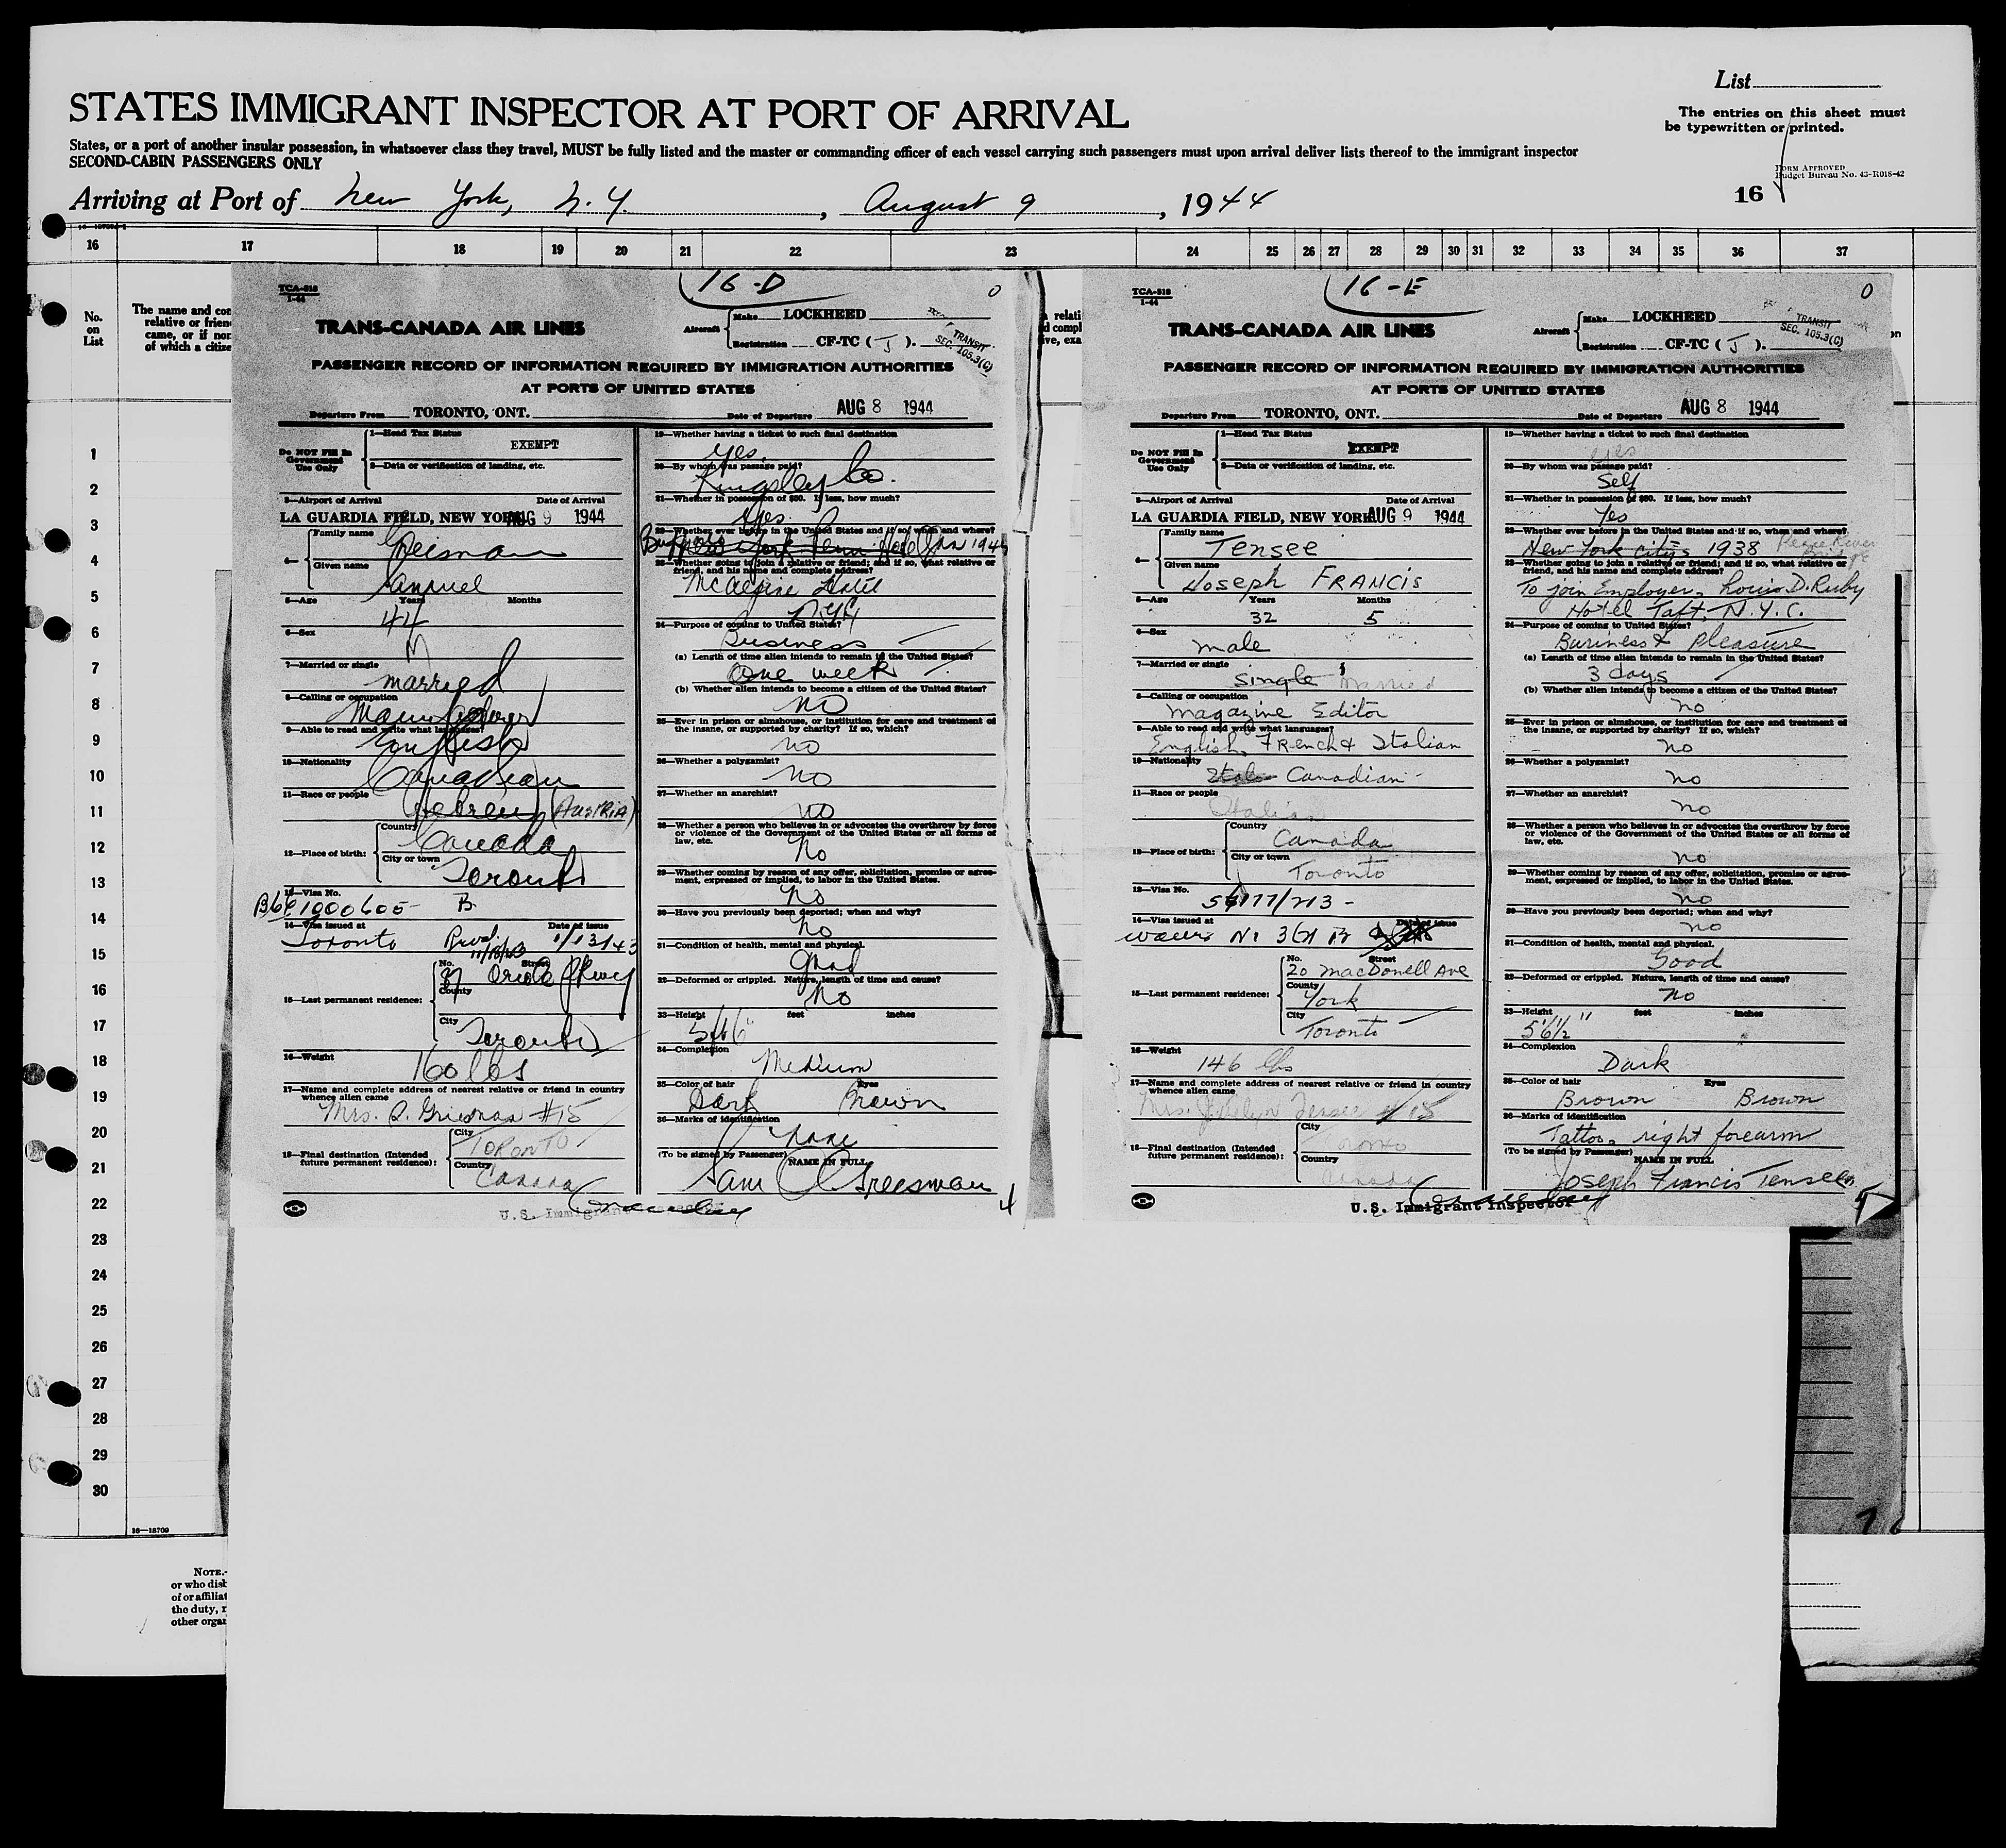 List
STATES IMMIGRANT INSPECTOR AT PORT OF ARRIVAL
The entries on this sheet must
be typewritten or printed.
States, or a port of another insular possession, in whatsoever class they travel, MUST be fully listed and the master or commanding officer of each vessel carrying such passengers must upon arrival deliver lists thereof to the immigrant inspector
SECOND-CABIN PASSENGERS ONLY
FORM APPROVED
Budget Bureau No. 43-R018-42
Arriving at Port of New York, N.Y., August 9, 1944
16
16 17 18 19 20 21 22 23 24 25 26 27 28 29 30 31 32 33 34 35 36 37
No.
on
List
The name and com
relative or friend
came, or if non
of which a citize
1
2
3
4
5
6
7
8
9
10
11
12
13
14
15
16
17
18
19
20
21
22
23
24
25
26
27
28
29
30
16—18709
NOTE.-
or who disb
of or affiliat
the duty, r
other organ
16-D
0
TCA-818
1-44
TRANS-CANADA AIR LINES
Aircraft
Make LOCKHEED
Registration CF-TC ( J ).
TRANSIT
SEC. 105.3(C)
PASSENGER RECORD OF INFORMATION REQUIRED BY IMMIGRATION AUTHORITIES
AT PORTS OF UNITED STATES
Departure From TORONTO, ONT. Date of Departure AUG 8 1944
Do NOT Fill In
Government
Use Only
1—Head Tax Status
EXEMPT
2—Data or verification of landing, etc.
3—Airport of Arrival Date of Arrival
LA GUARDIA FIELD, NEW YORK AUG 9 1944
4—
Family name
Greisman
Given name
Samuel
5—Age Years Months
44
6—Sex
M
7—Married or single
married
8—Calling or occupation
9—Able to read and write what languages?
English
10—Nationality
Canadian
11—Race or people
Hebrew (AUSTRIA)
12—Place of birth:
Country
Canada
City or town
Toronto
13—Visa No.
1000605 B
14—Visa issued at Date of issue
Toronto 1/13/43
15—Last permanent residence:
No. Street
County
City
Toronto
16—Weight
160 lbs
17—Name and complete address of nearest relative or friend in country
whence alien came
Mrs. S. Griesman #15
18—Final destination (Intended
future permanent residence):
City
TORONTO
Country
Canada
U.S. Immigrant
19—Whether having a ticket to such final destination
Yes.
20—By whom was passage paid?
Kingsley Co.
21—Whether in possession of $50. If less, how much?
Yes
22—Whether ever before in the United States and if so, when and where?
New York Penn Hotel
23—Whether going to join a relative or friend; and if so, what relative or
friend, and his name and complete address?
McAlpine Hotel
NYC
24—Purpose of coming to United States?
Business
(a) Length of time alien intends to remain in the United States?
One week
(b) Whether alien intends to become a citizen of the United States?
no
25—Ever in prison or almshouse, or institution for care and treatment of
the insane, or supported by charity? If so, which?
no
26—Whether a polygamist?
no
27—Whether an anarchist?
no
28—Whether a person who believes in or advocates the overthrow by force
or violence of the Government of the United States or all forms of
law, etc.
No
29—Whether coming by reason of any offer, solicitation, promise or agree-
ment, expressed or implied, to labor in the United States.
No
30—Have you previously been deported; when and why?
No
31—Condition of health, mental and physical.
Good
32—Deformed or crippled. Nature, length of time and cause?
No
33—Height feet inches
5'6"
34—Complexion
Medium
35—Color of hair Eyes
Dark Brown
36—Marks of identification
None
(To be signed by Passenger) NAME IN FULL
Sam Greisman
4
16-E
0
TCA-818
1-44
TRANS-CANADA AIR LINES
Aircraft
Make LOCKHEED
Registration CF-TC ( J ).
TRANSIT
SEC. 105.3(C)
PASSENGER RECORD OF INFORMATION REQUIRED BY IMMIGRATION AUTHORITIES
AT PORTS OF UNITED STATES
Departure From TORONTO, ONT. Date of Departure AUG 8 1944
Do NOT Fill In
Government
Use Only
1—Head Tax Status
EXEMPT
2—Data or verification of landing, etc.
3—Airport of Arrival Date of Arrival
LA GUARDIA FIELD, NEW YORK AUG 9 1944
4—
Family name
Tensee
Given name
Joseph FRANCIS
5—Age Years Months
32 5
6—Sex
male
7—Married or single
single married
8—Calling or occupation
Magazine Editor
9—Able to read and write what languages?
English, French & Italian
10—Nationality
Canadian
11—Race or people
Italian
12—Place of birth:
Country
Canada
City or town
Toronto
13—Visa No.
14—Visa issued at Date of issue
15—Last permanent residence:
No. Street
20 MacDonell Ave
County
York
City
Toronto
16—Weight
146 lbs
17—Name and complete address of nearest relative or friend in country
whence alien came
Mrs. Tensee #15
18—Final destination (Intended
future permanent residence):
City
Toronto
Country
Canada
U.S. Immigrant Inspector
19—Whether having a ticket to such final destination
Yes
20—By whom was passage paid?
Self
21—Whether in possession of $50. If less, how much?
Yes
22—Whether ever before in the United States and if so, when and where?
New York City 1938
23—Whether going to join a relative or friend; and if so, what relative or
friend, and his name and complete address?
To join Employer, Louis D. Ruby
Hotel Taft, N.Y.C.
24—Purpose of coming to United States?
Business & pleasure
(a) Length of time alien intends to remain in the United States?
3 days
(b) Whether alien intends to become a citizen of the United States?
no
25—Ever in prison or almshouse, or institution for care and treatment of
the insane, or supported by charity? If so, which?
no
26—Whether a polygamist?
no
27—Whether an anarchist?
no
28—Whether a person who believes in or advocates the overthrow by force
or violence of the Government of the United States or all forms of
law, etc.
no
29—Whether coming by reason of any offer, solicitation, promise or agree-
ment, expressed or implied, to labor in the United States.
no
30—Have you previously been deported; when and why?
no
31—Condition of health, mental and physical.
Good
32—Deformed or crippled. Nature, length of time and cause?
no
33—Height feet inches
5'6½"
34—Complexion
Dark
35—Color of hair Eyes
Brown Brown
36—Marks of identification
Tattoo, right forearm
(To be signed by Passenger) NAME IN FULL
Joseph Francis Tensee
5